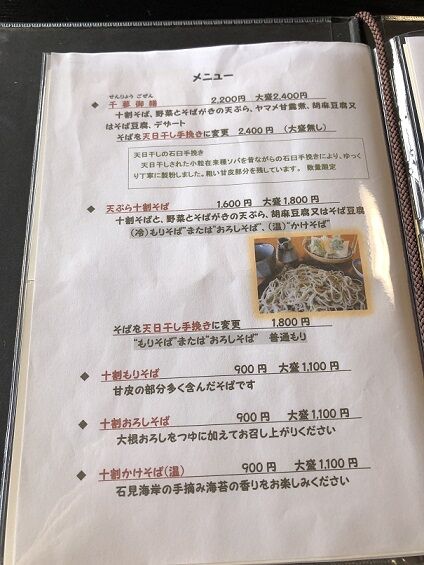 メニュー
せんりょう ごぜん
◆ 千寮御膳 2,200円 大盛2,400円
十割そば、野菜とそばがきの天ぷら、ヤマメ甘露煮、胡麻豆腐又
はそば豆腐、デザート
そばを天日干し手挽きに変更 2,400円 (大盛無し)
天日干しの石臼手挽き
天日干しされた小粒在来種ソバを昔ながらの石臼手挽きにより、ゆっく
り丁寧に製粉しました。粗い甘皮部分を残しています。 数量限定
◆ 天ぷら十割そば 1,600円 大盛1,800円
十割そばと、野菜とそばがきの天ぷら、胡麻豆腐又はそば豆腐
(冷)もりそば"または"おろしそば"、(温)"かけそば"
そばを天日干し手挽きに変更 1,800円
"もりそば"または"おろしそば" 普通もり
◆ 十割もりそば 900円 大盛1,100円
甘皮の部分多く含んだそばです
◆ 十割おろしそば 900円 大盛1,100円
大根おろしをつゆに加えてお召し上がりください
◆ 十割かけそば(温) 900円 大盛1,100円
石見海岸の手摘み海苔の香りをお楽しみください